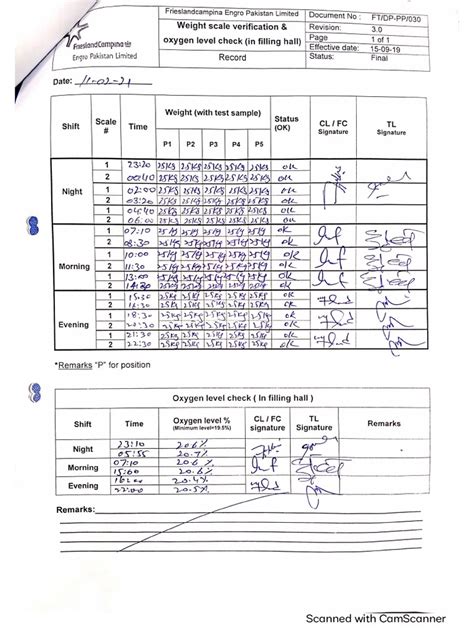 Frieslandcampina Engro Pakistan Limited
Weight scale verification &
oxygen level check (in filling hall)
Record
Document No : FT/DP-PP/030
Revision: 3.0
Page 1 of 1
Effective date: 15-09-19
Status: Final
FrieslandCampina
Engro Pakistan Limited
Date: 11-02-21
Shift Scale # Time Weight (with test sample) Status (OK) CL / FC Signature TL Signature
P1 P2 P3 P4 P5
Night
1 23:20 25kg 25kg 25kg 25kg 25kg ok
2 00:40 25kg 25kg 25kg 25kg 25kg ok
1 02:00 25kg 25kg 25kg 25kg 25kg ok
2 03:20 25kg 25kg 25kg 25kg 25kg ok
1 04:40 25kg 25kg 25kg 25kg 25kg ok
2 06:00 25kg 25kg 25kg 25kg 25kg ok
Morning
1 07:10 25kg 25kg 25kg 25kg 25kg ok
2 08:30 25kg 25kg 25kg 25kg 25kg ok
1 10:00 25kg 25kg 25kg 25kg 25kg ok
2 11:30 25kg 25kg 25kg 25kg 25kg ok
1 13:00 25kg 25kg 25kg 25kg 25kg ok
2 14:30 25kg 25kg 25kg 25kg 25kg ok
Evening
1 15:30 25kg 25kg 25kg 25kg 25kg ok
2 16:30 25kg 25kg 25kg 25kg 25kg ok
1 18:30 25kg 25kg 25kg 25kg 25kg ok
2 20:30 25kg 25kg 25kg 25kg 25kg ok
1 21:30 25kg 25kg 25kg 25kg 25kg ok
2 22:30 25kg 25kg 25kg 25kg 25kg ok
*Remarks "P" for position
Oxygen level check ( In filling hall )
Shift Time Oxygen level % (Minimum level=19.5%) CL / FC signature TL Signature Remarks
Night
23:10 20.6%
05:55 20.7%
Morning
07:10 20.6%
15:00 20.6%
Evening
20.4%
22:00 20.5%
Remarks:
Scanned with CamScanner